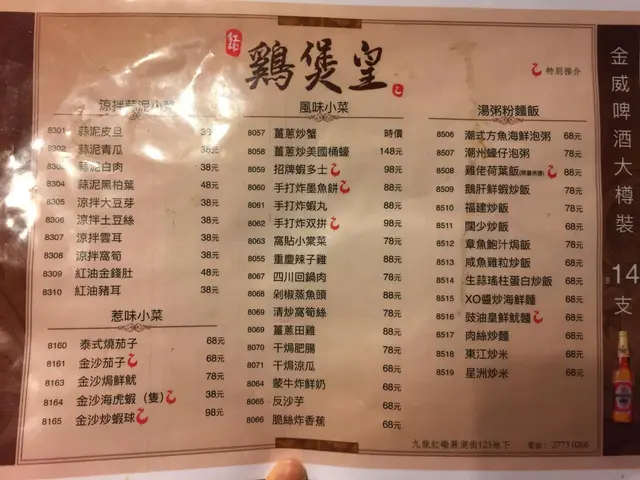 紅磡
鷄煲皇
特別推介
涼拌蒜泥小菜
8301 蒜泥皮旦 38元
8302 蒜泥青瓜 38元
8303 蒜泥白肉 38元
8304 蒜泥黑柏葉 48元
8305 涼拌大豆芽 38元
8306 涼拌土豆絲 38元
8307 涼拌雲耳 38元
8308 涼拌窩筍 38元
8309 紅油金錢肚 48元
8310 紅油豬耳 38元
惹味小菜
8160 泰式燒茄子 68元
8161 金沙茄子 68元
8163 金沙焗鮮魷 78元
8164 金沙海虎蝦（隻） 38元
8165 金沙炒蝦球 98元
風味小菜
8057 薑蔥炒蟹 時價
8058 薑蔥炒美國桶蠔 148元
8059 招牌蝦多士 98元
8060 手打炸墨魚餅 88元
8061 手打炸蝦丸 98元
8062 手打炸双拼 98元
8063 窩貼小棠菜 78元
8055 重慶辣子雞 88元
8067 四川回鍋肉 78元
8068 剁椒蒸魚頭 88元
8069 清炒窩筍絲 78元
8069 薑蔥田雞 88元
8070 干焗肥腸 78元
8071 干焗涼瓜 68元
8064 蒙牛炸鮮奶 68元
8065 反沙芋 68元
8066 脆絲炸香蕉 68元
湯粥粉麵飯
8506 潮式方魚海鮮泡粥 68元
8507 潮州蠔仔泡粥 78元
8508 雞佬荷葉飯 88元
8509 鵝肝鮮蝦炒飯 78元
8510 福建炒飯 78元
8511 闊少炒飯 68元
8512 章魚鮑汁焗飯 78元
8513 咸魚雞粒炒飯 68元
8514 生蒜瑤柱蛋白炒飯 68元
8515 XO醬炒海鮮麵 68元
8516 豉油皇鮮魷麵 68元
8517 肉絲炒麵 68元
8518 東江炒米 68元
8519 星洲炒米 68元
九龍紅磡蕪湖街123號地下 電話：2773 0268
金威啤酒大樽裝
$14支